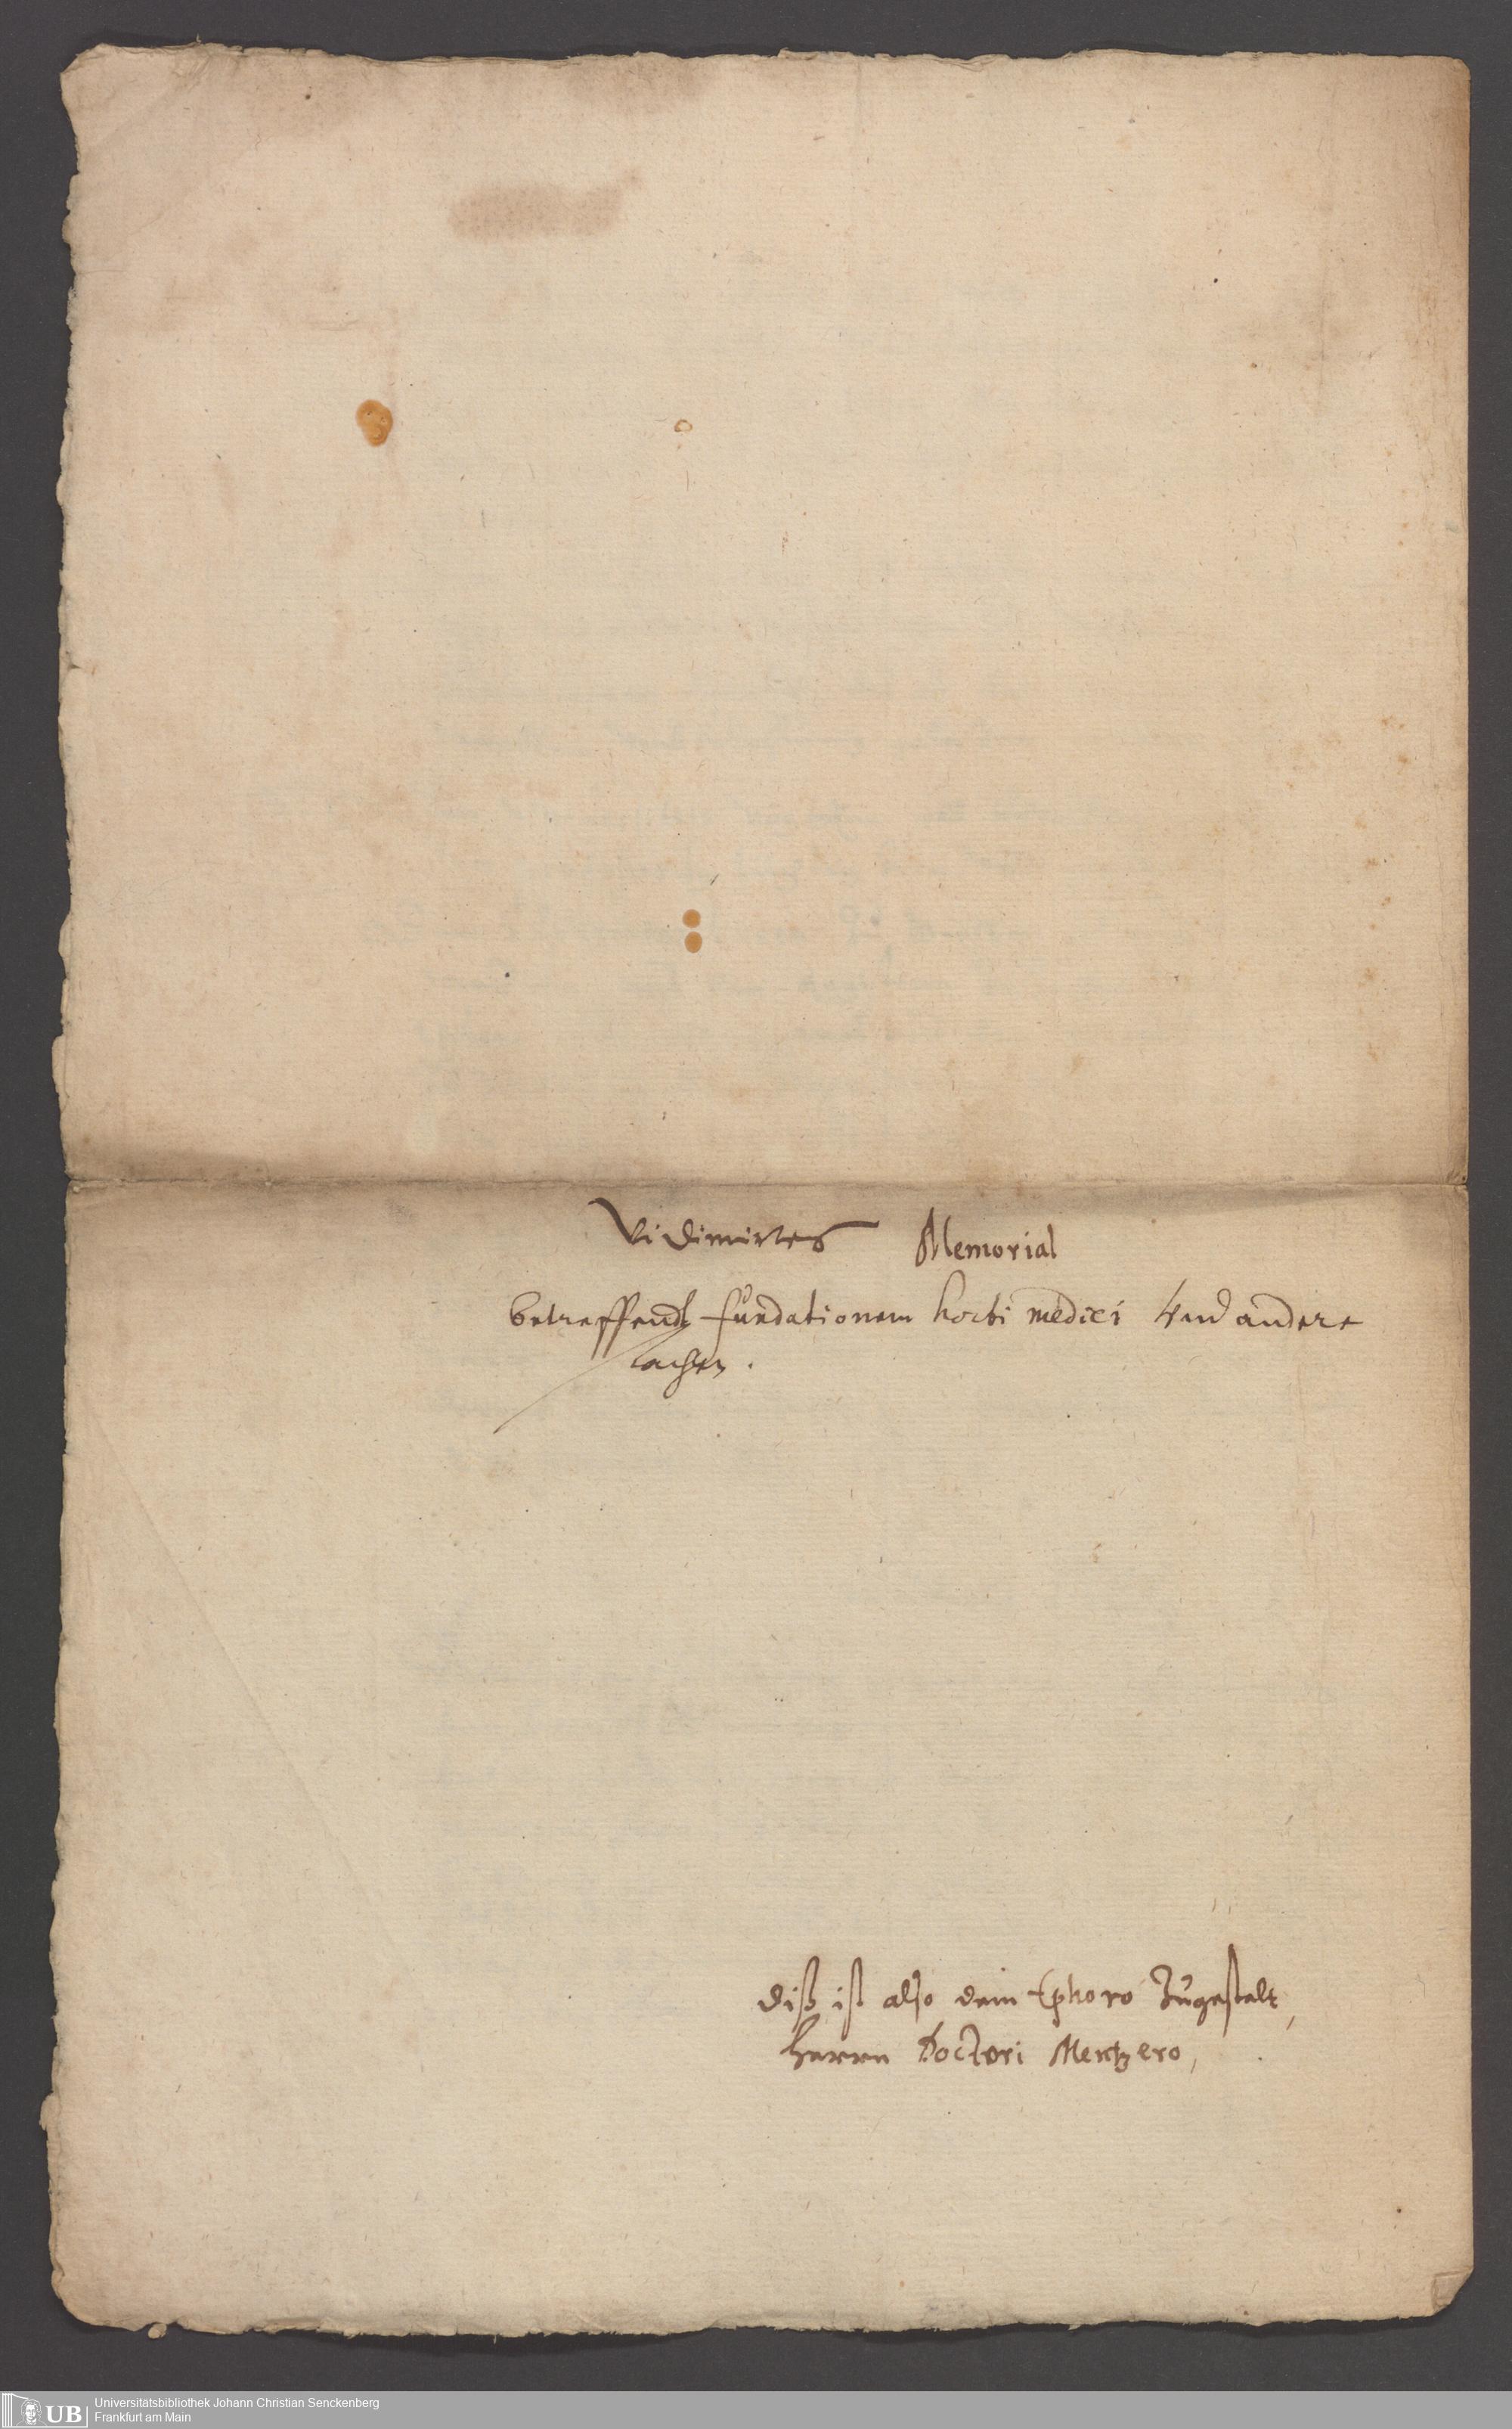 Vidimirtes Memorial
betreffendt fundationem horti medici vnd andere
sachen.
diß ist also dem Ephoro zugestelt,
Herrn Doctori Mentzero,
UB
Universitätsbibliothek Johann Christian Senckenberg
Frankfurt am Main